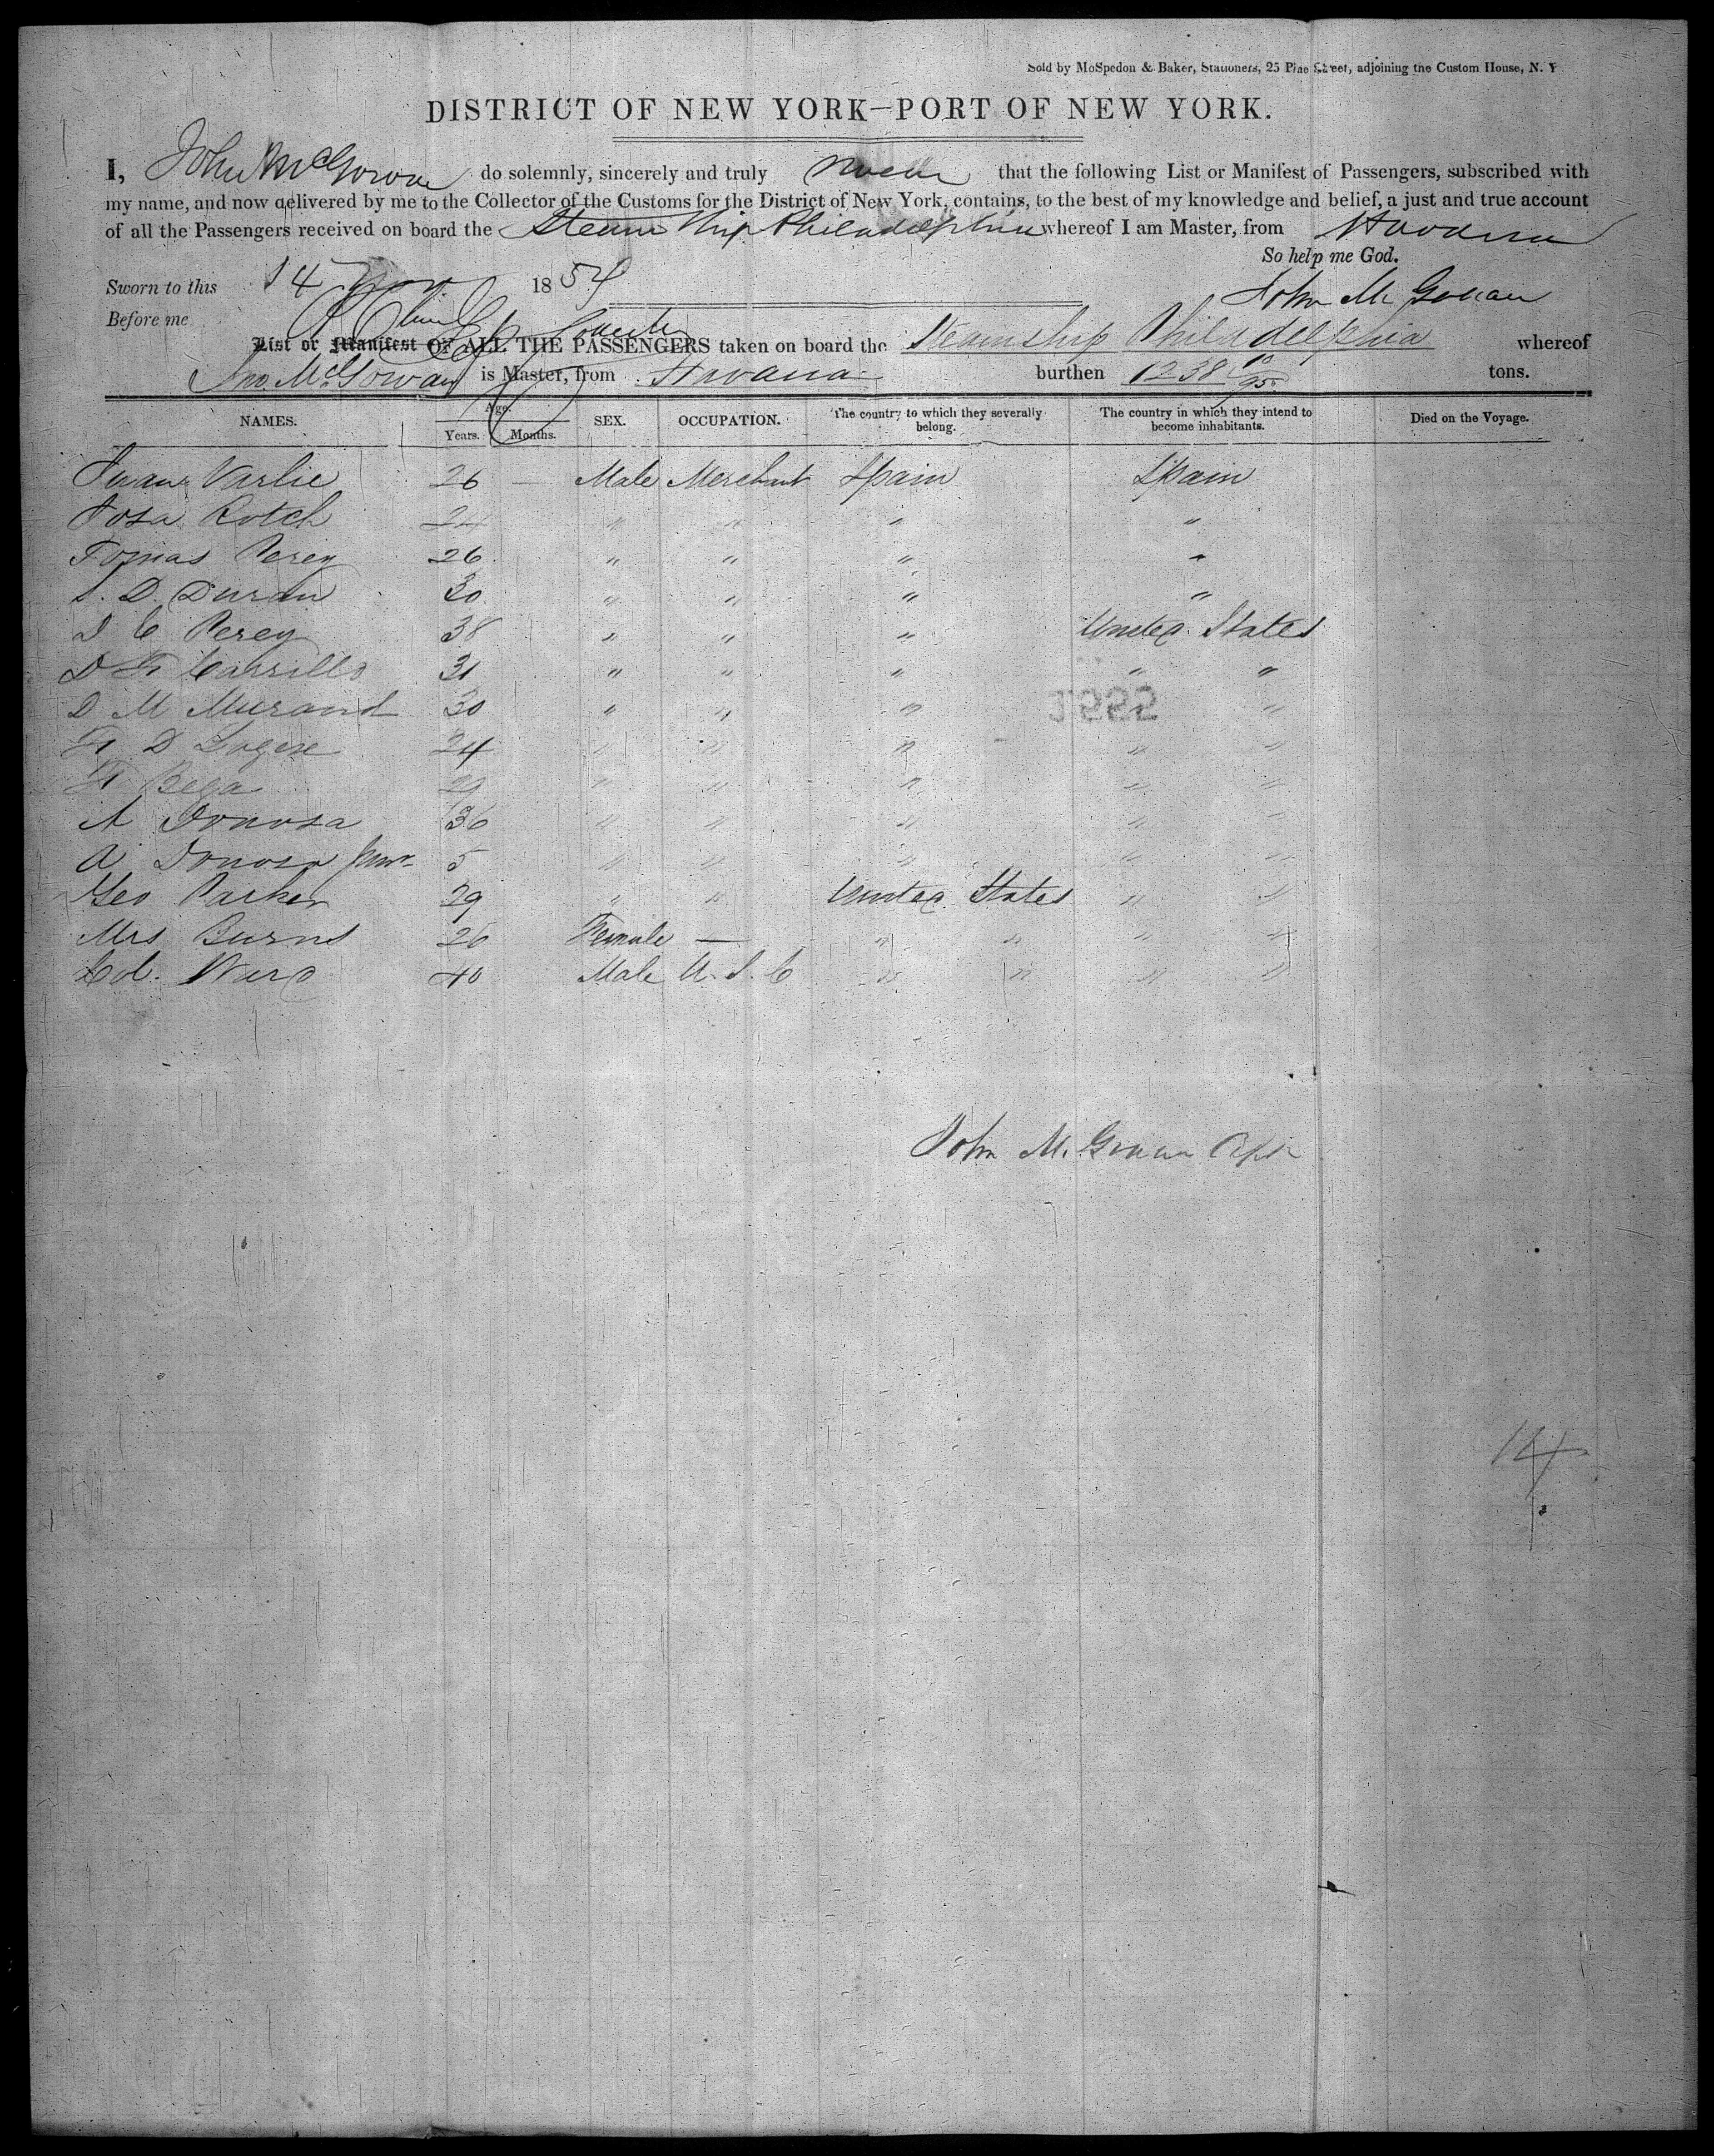 Sold by McSpedon & Baker, Stationers, 25 Pine Street, adjoining the Custom House, N. Y
DISTRICT OF NEW YORK—PORT OF NEW YORK.
I, John McGowan do solemnly, sincerely and truly swear that the following List or Manifest of Passengers, subscribed with
my name, and now delivered by me to the Collector of the Customs for the District of New York, contains, to the best of my knowledge and belief, a just and true account
of all the Passengers received on board the Steam Ship Philadelphia whereof I am Master, from Havana
So help me God.
Sworn to this 14 Nov 1854
John McGowan
Before me
List or Manifest OF ALL THE PASSENGERS taken on board the Steamship Philadelphia whereof
Jno. McGowan is Master, from Havana burthen 1238 10/95 tons.
NAMES. Age. Years. Months. SEX. OCCUPATION. The country to which they severally belong. The country in which they intend to become inhabitants. Died on the Voyage.
Juan Varlie 26 — Male Merchant Spain Spain
Josa Rotch 24 " " " "
Tomas Perez 26 " " " "
D. Duran 30 " " " "
D C Perez 38 " " " United States
D F Carrillo 31 " " " " "
D M Murand 30 " " " "
F D Logere 24 " " " " "
F Bega 29 " " " " "
A Donosa 36 " " " " "
A Donosa Junr 5 " " " " "
Geo Parker 29 " " United States " "
Mrs Burns 26 Female — " " " "
Col. Ward 40 Male U. S. C " " " "
John McGowan Capt
14